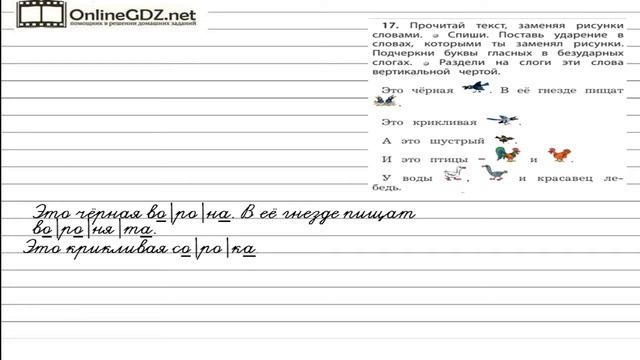 OnlineGDZ.net
помощник в решении домашних заданий
17. Прочитай текст, заменяя рисунки
словами. Спиши. Поставь ударение в
словах, которыми ты заменял рисунки.
Подчеркни буквы гласных в безударных
слогах. Раздели на слоги эти слова
вертикальной чертой.
Это чёрная . В её гнезде пищат
.
Это крикливая .
А это шустрый .
И это птицы – и .
У воды , и красавец ле-
бедь.
Это чёрная во|ро|на. В её гнезде пищат
во|ро|ня|та.
Это крикливая со|ро|ка.